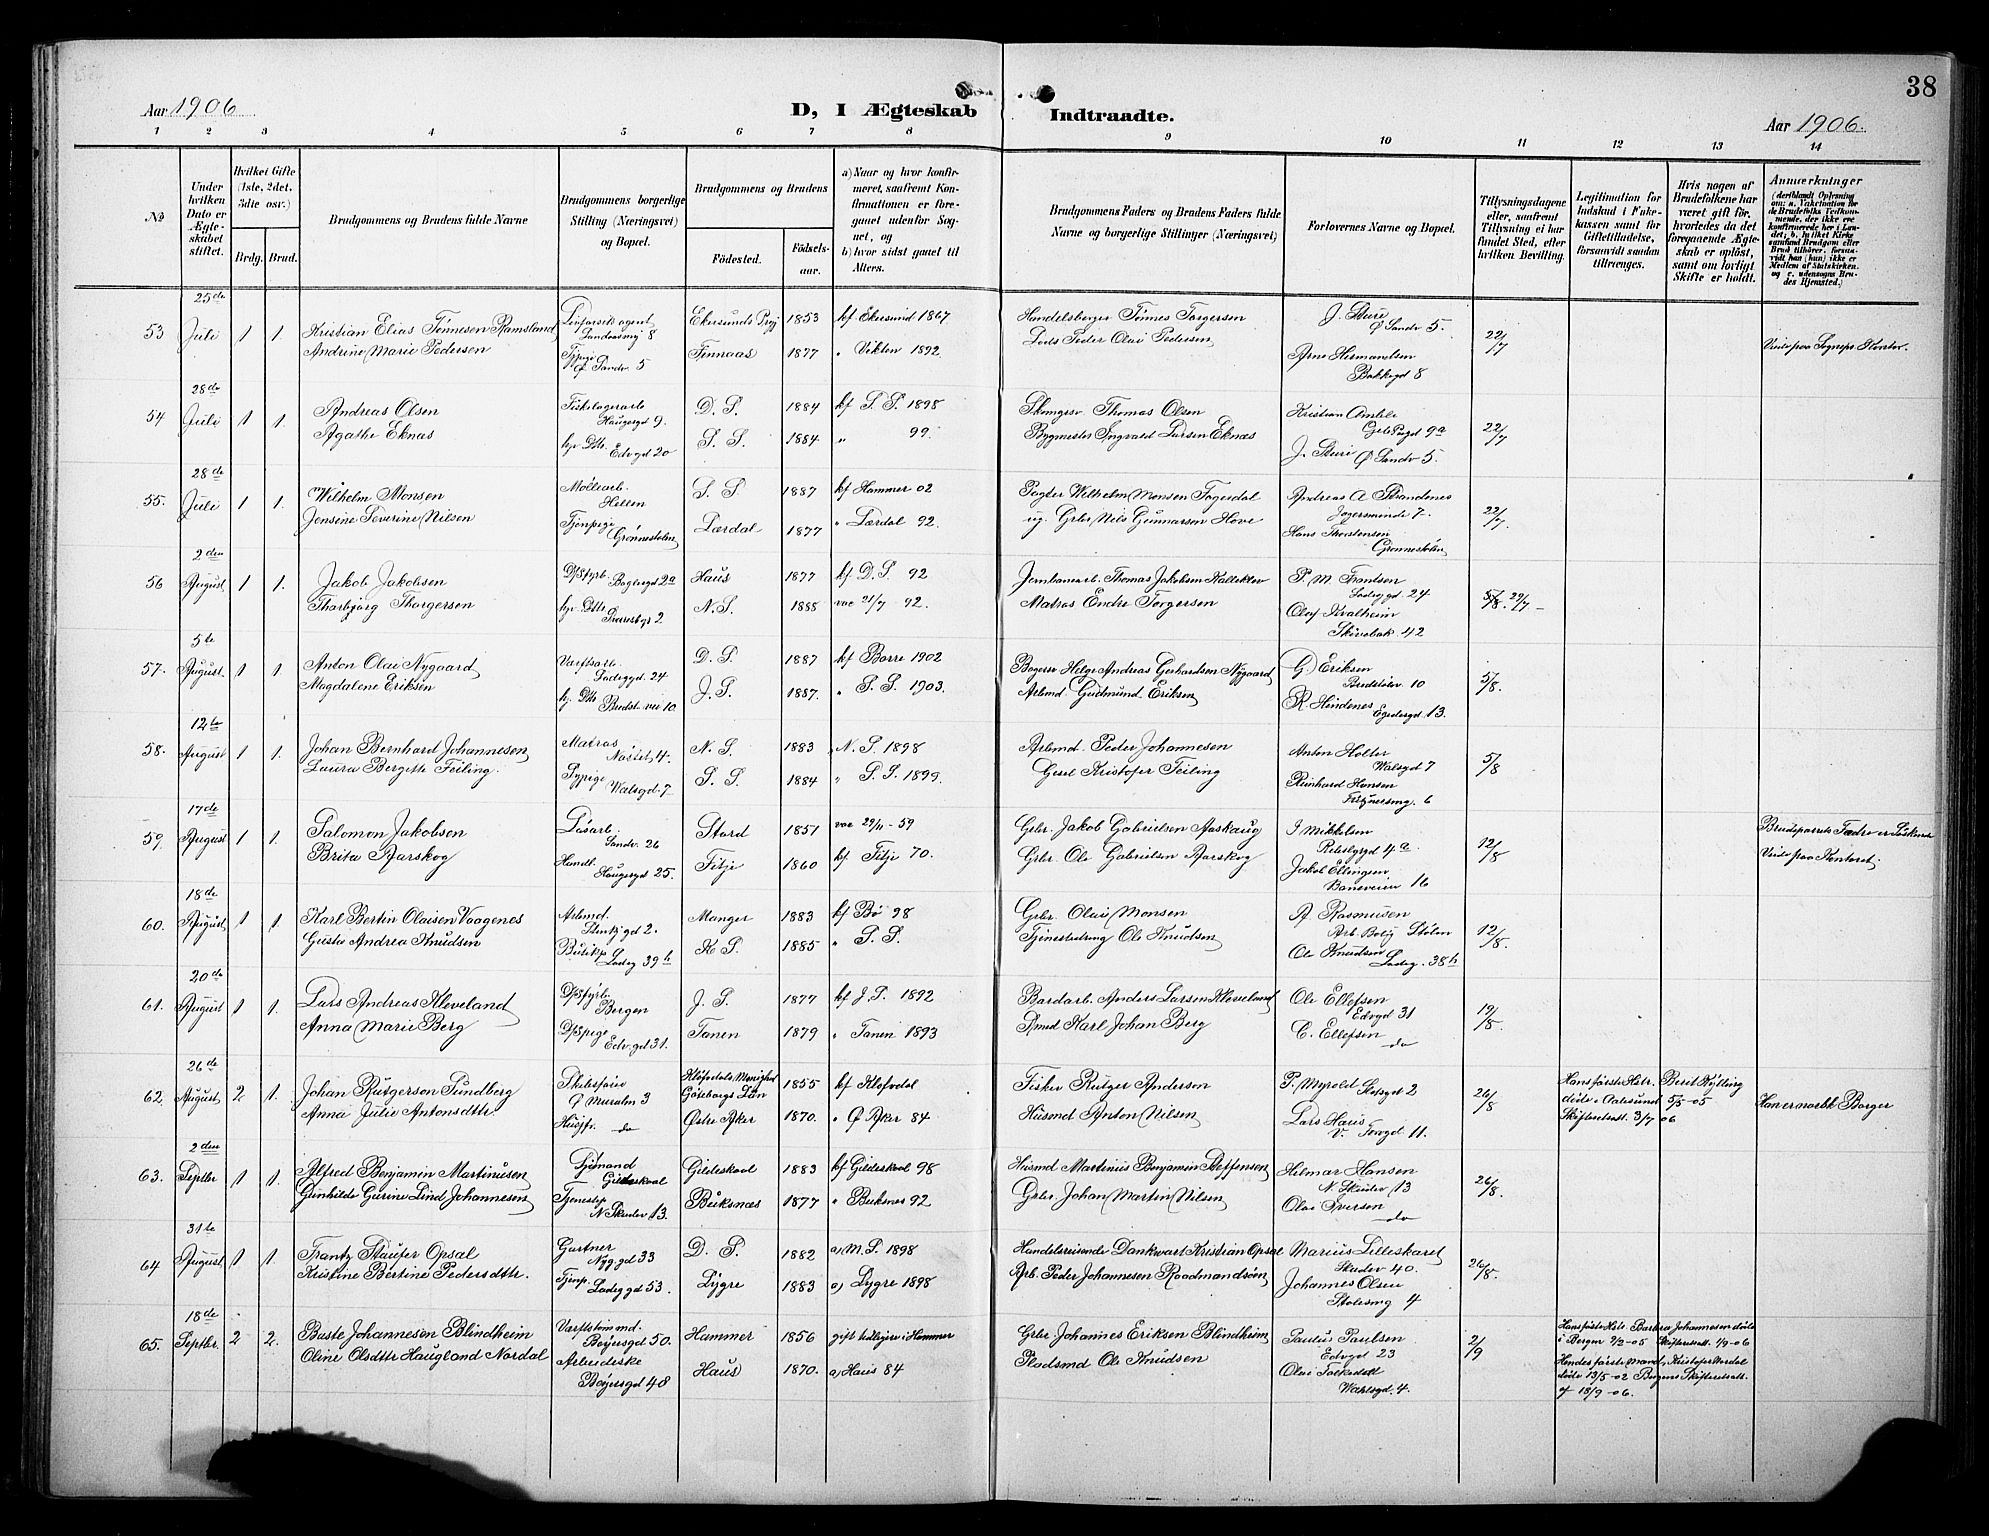 38
Aar 1906
D, I Ægteskab Indtraadte.
Aar 1906.
1 2 3 4 5 6 7 8 9 10 11 12 13 14
No
Under hvilken Dato er Ægteskabet stiftet.
Hvilket Gifte (1ste, 2det, 3dte osv.)
Brdg. Brud.
Brudgommens og Brudens fulde Navne
Brudgommens borgerlige Stilling (Næringsvei) og Bopæl.
Brudgommens og Brudens
Fødested. Fødselsaar.
a) Naar og hvor konfirmeret, saafremt Konfirmationen er foregaaet udenfor Sognet, og
b) hvor sidst gaaet til Alters.
Brudgommens Faders og Brudens Faders fulde Navne og borgerlige Stillinger (Næringsvei)
Forlovernes Navne og Bopæl.
Tillysningsdagene eller, saafremt Tillysning ei har fundet Sted, efter hvilken Bevilling.
Legitimation for Indskud i Enkekassen samt for Giftetilladelse, forsaavidt saadan tiltrænges.
Hvis nogen af Brudefolkene har været gift før, hvorledes da det foregaaende Ægteskab er opløst, samt om lovligt Skifte er holdt.
Anmærkninger
(deriblandt Oplysning om: a. Vakcination for de Brudefolks Vedkommende, der ikke ere konfirmerede her i Landet; b. hvilket Kirkesamfund Brudgom eller Brud tilhører, forsaavidt han (hun) ikke er Medlem af Statskirken, og c. udensogns Brudes Hjemsted.)
25de
53 Juli 1 1. Kristian Elias Tönnesen Ramsland Ekersunds Prgj 1853 kf Ekersund 1867 Handelsborger Tönnes Torgersen J. Sture
Sandvig 8 Ø Sandv 5.
Andrine Marie Pedersen Finnaas 1877 " Vikten 1892. Lods Peder Olai Pedersen 22/7 Viede paa Sogneps. Kontor.
Ø Sandv. 5 Arne Hermansen
Bakkegd 8
28de
54 Juli 1 1. Andreas Olsen D. S. 1884 kf S. S. 1898 Thomas Olsen Kristian
Haugegd 9.
Agathe Eknas hj. Dtr. S. S. 1884 " 99. Bygmester Ingvald Larsen Eknæs 22/7
Edvgd 20 J. Sture Ø Sandv 5.
28de
55. Juli 1 1. Wilhelm Monsen Møllearb. S. S 1887 kf Hammer 02 Wilhelm Monsen Andreas A Strandenes
Hellen
Jensine Severine Nilsen Tjenpige Lærdal 1877 " Lærdal 92. ug. Gbr Nils Gunnarsen Hove 22/7.
Grønnestølen Hans Thorstensen
Grønnestølen
2den
56 August 1 1. Jakob Jakobsen Haus 1877 kf D. S. 92 Jernbanearb. Thomas Jakobsen P. M. Frantsen
Ladegd 24
Thorbjørg Thorgersen hj. Dtr. N. S. 1888 vac 21/7 92. Matros Endre Torgersen 5/8. 29/7 -
Olaf Kvalheim
Skivebak. 42
5te
57. August 1 1. Anton Olai Nygaard Varftsarb. D. S. 1887 kf Borre 1902 Helge Andreas Gerhardsen Nygaard G. Eriksen
Ladegd. 24 Bredstølv 10
Magdalene Eriksen hj. Dtr J. S. 1887. " S. S. 1903. Arbmd. Gudmund Eriksen 5/8.
Brudst. vei 10 R. Hindenes Egedesgd 13.
12te
58. August 1 1. Johan Bernhard Johannesen Matros N. S. 1883 N. S. 1898 Arbmd. Peder Johannesen Anton Holter
Nöstet 4. Walsgd 7
Laura Bergitte Feiling. Sypige S. S. 1884 " S. S. 1899. Gesel Kristofer Feiling 5/8
Walsgd 7 Reinhard Hansen
6
17de
59. August 1 1. Salomon Jakobsen Løsarb. Stord 1851 vac 29/11-59 Gbr. Jakob Gabrielsen Aaskaug J Mikkelsen Brudeparrets Fædre er Søskende
Sandv. 26 4a
Brita Aarskog Handl. Fitje 1860 kf Fitje 70. Gbr Ole Gabrielsen Aarskog 12/8 Viede paa Kontoret.
Haugegd 25. Jakob Ellingsen
Baneveien 16
18de
60. August 1 1. Karl Bertin Olaisen Vaagenes Arbmd. Manger 1883 kf Bø 98 Gbr. Olai Monsen A Rasmusen
Arb Bolig Stølen
Gusta Andrea Knudsen K S. 1885 " S. S. Ole Knudsen 12/8.
Ladeg 39b Ole Knudsen
Ladeg. 38b
20de
61. August 1 1. Lars Andreas Kleveland J. S. 1877 kf J. S. 1892 Anders Larsen Kleveland Ole Ellefsen
Bergen Edvgd 31
Anna Marie Berg Tanen 1879 " Tanen 1893 Karl Johan Berg 19/8.
Edv.gd 31. C. Ellefsen
do
26de
62. August 2 1. Johan Rutgerson Sundberg Kløfvedals Menighed 1855 kf Kløfvdal Fisker Rutger Anderson P. Myrold Slotsgd 2 Hans første Hstr. Berit Kytling
Ø Muralm 3 Göteborgs Län død i Aalesund 5/5-05
Anna Julie Antonsdtr. Husjfr. do Østre Aker 1870. " Ø Aker 84 Husmd Anton Nilsen 26/8 Skifteretsatt. 3/7 06 Han er norsk Borger
Lars Haus
V. Torvgd 11.
2den
63. Septbr 1 1. Alfred Benjamin Martinusen Sjömand Gildeskaal 1883 kf Gildeskaal 98 Husmd Martinus Benjamin Steffensen Hilmar Hansen
Gildeskaal N. Skudev 13
Gunhilde Gurine Lind Johannesen Tjenestep Buksnæs 1877 " Buksnes 92. Gbr Johan Martin Nilsen 26/8.
N Skudev 13. Olai Iversen
do
31te
64 August 1 1. Frantz Staufer Opsal Gartner D. S. 1882 a) M. S. 1898 Handelsreisende Dankvart Kristian Opsal Marius Lilleskaret
Nyggd 33 Skudev 40.
Kristine Bertine Pedersdttr. Tjenp. Lygre 1883 a) Lygre 1898 Arb. Peder Johannesen 26/8.
Ladeggd 53. Johannes Olsen
Stølesmg 4
18de
65. Septbr. 2 2. Baste Johannesen Blindheim Hammer 1856 gift tidligere i Hammer Gbr Johannes Eriksen Blindheim Paulus Paulsen Hans første Hstr. Barbra Johannesen døde
Bøiersgd 50. Edvgd 23 2/9 i Bergen 9/2-05 Skifteretsatt. 1/9-06
Oline Olsdttr Haugland Nordal Arbeiderske Haus 1870. a) Haus 84 Pladsmd Ole Knudsen Hendes første Mand, Kristofer Nordal
Bøiersgd 48 Olai døde 13/5-02 Bergens Skifteretsatt.
Wahlsgd. 4. af 18/9-06.